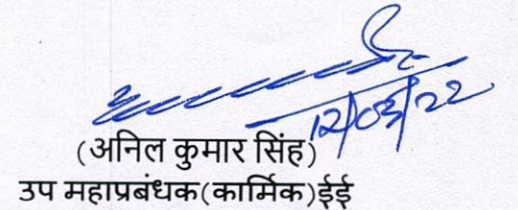 12/03/22
(अनिल कुमार सिंह)
उप महाप्रबंधक(कार्मिक)ईई